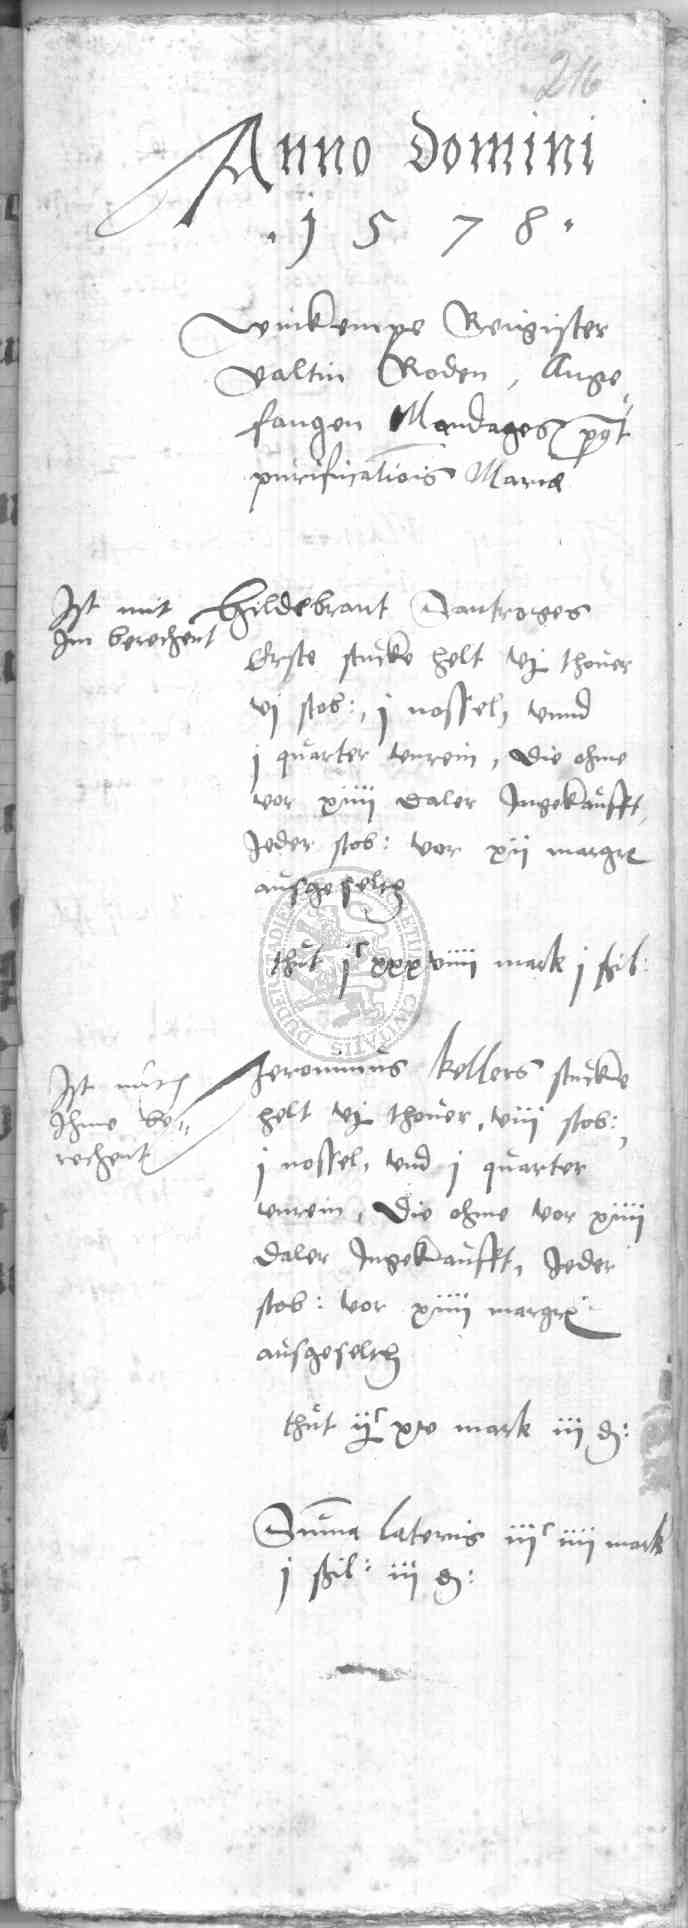 216
Anno Domini
. 1 5 7 8 .
Winkempe Reigister
Valtin Roden, Ange„
fangen Mandages post
purificationis Marie
Ist mit
Im berechent
Hildebrant
Erste stucke helt vj thover
vj stob:, j nossel, vnnd
j quarter vnrein, Die ohme
vor xiiii daler Ingekaufft,
Jeder stob: vor xii margr
ausgeselth
thut jc xxxviiii mark j ßil:
Ist
Ihme be„
rechent
Jeronimus Kellers stucke
helt vj thover, viii stob:,
j nossel, vnd j quarter
vnrein, Die ohme vor xiiii
daler Ingekaufft, Jeder
stob: vor xiiii margr
ausgeselth
thut iic xv mark iii d:
Suma lateris iiic iiii mark
j ßil: iii d:
DUDER CIVITATIS